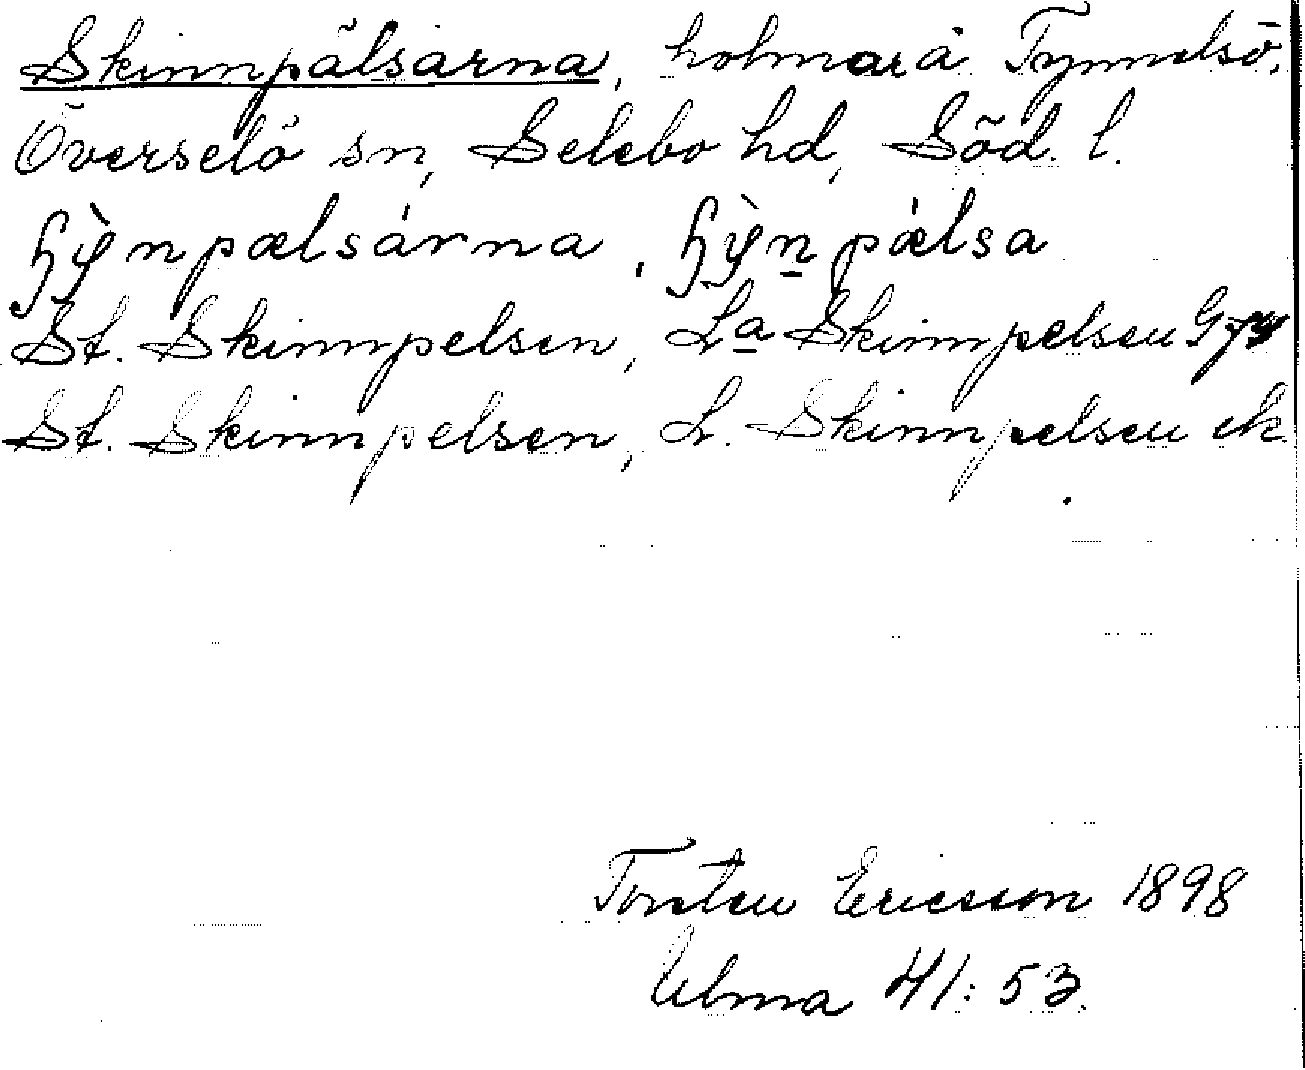 Skinnpälsarna, holmar å Tynnelsö,
Överselö sn, Selebo hd, Söd. l.
St. Skinnpelsen, La Skinnpelsen G
St. Skinnpelsen, L. Skinnpelsen ek
Torsten Ericsson 1898
Ulma 41:53